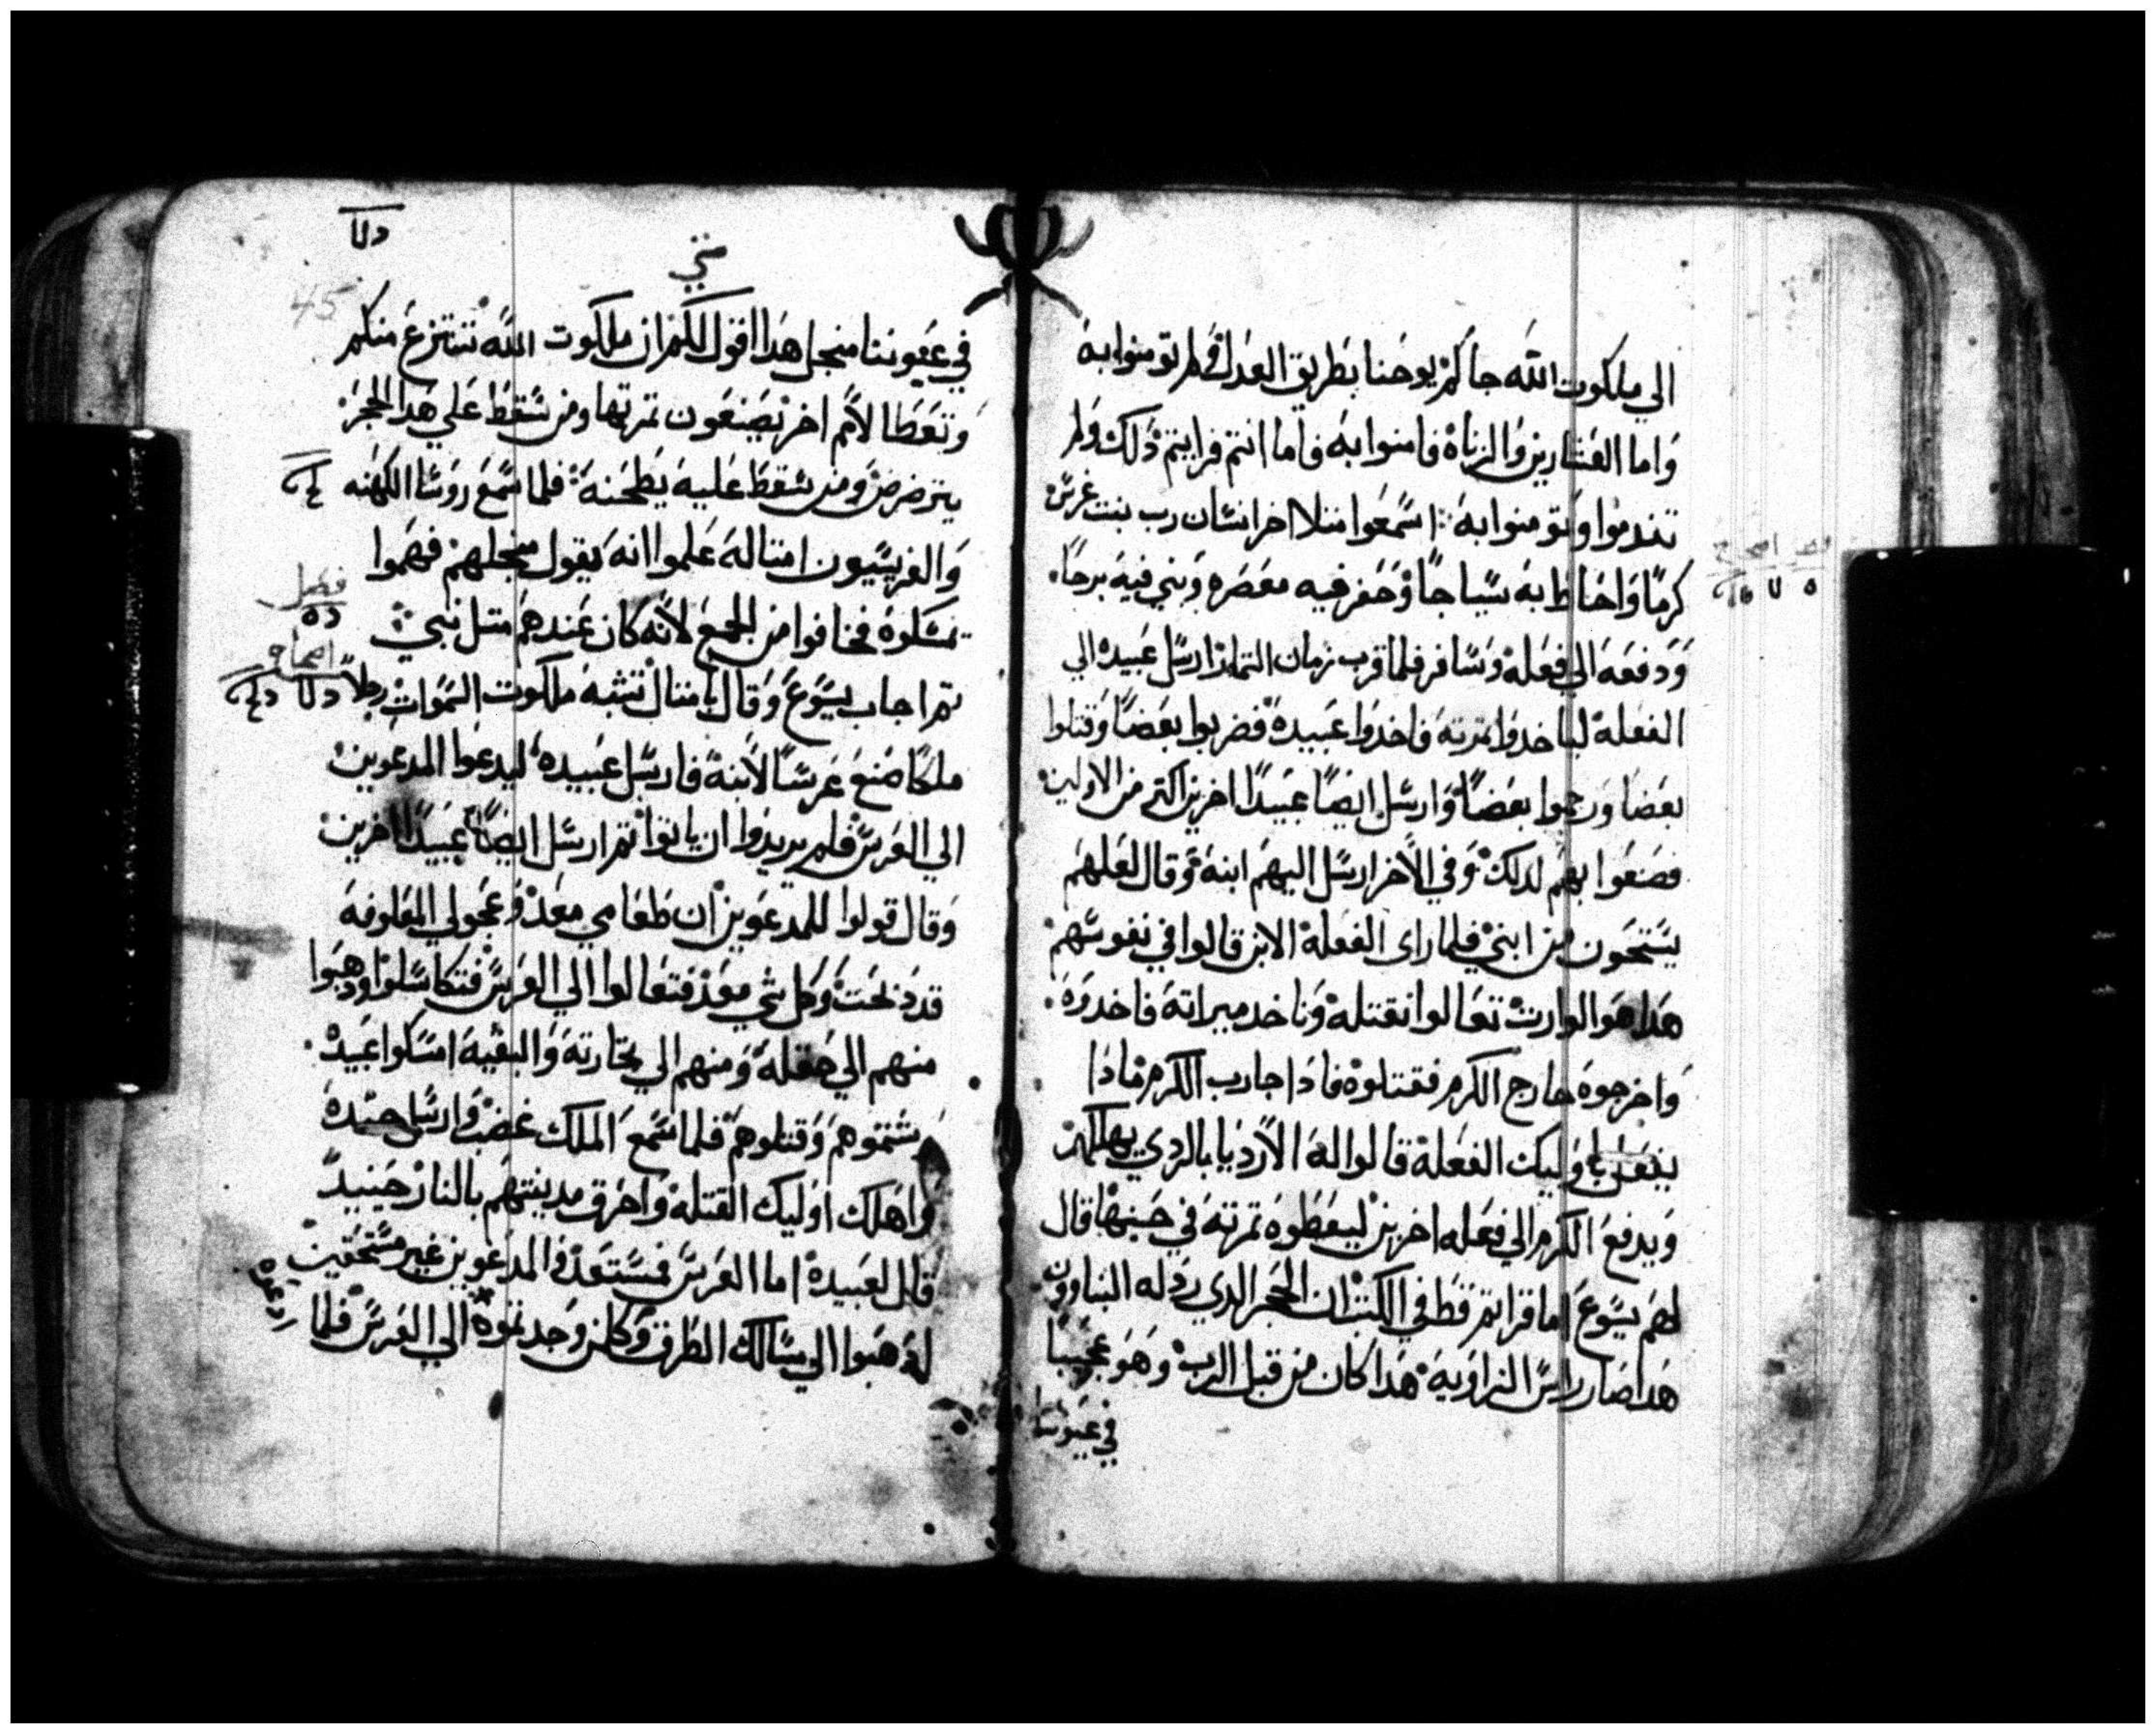 الي ملكوت الله جاكم يوحنا بطريق العدل فلم تومنوا به
واما العشارين والزناه فامنوا به فاما انتم فرايتم دلك ولم
تندموا وتومنوا به اسمعوا متلا اخر انسان رب بيت غرس
كرمًا واحاط به سياجًا وحفر فيه معصره وبني فيه برجًا
ودفعه الي فعله وسافر فلما قرب زمان التمار ارسل عبيده الي
الفعله لياخدوا تمرته فاخدوا عبيده فضربوا بعضًا وقتلوا
بعضا ورجموا بعضًا وارسل ايضًا عبيدًا اخرين اكتر من الاولين
فصنعوا بهم لدلك وفي الاخر ارسل اليهم ابنه وقال لعلهم
يستحون من ابني فلما راي الفعله الابن قالوا في نفوسهم
هدا هو الوارت تعالوا نقتله وناخد ميراته فاخدوه
واخرجوه خارج الكرم فقتلوه فادا جا رب الكرم مادا
يفعل باوليك الفعله قالوا له الارديا بالردي يهلكهم
ويدفع الكرم الي فعله اخرين ليعطوه تمرته في حينها قال
لهم يسوع اما قراتم قط في الكتب ان الحجر الدي ردله البناوون
هدا صار راس الزاويه هدا كان من قبل الرب وهو عجيبًا
في عيوننا
متي
45
في عيوننا منجل هدا اقول لكم ان ملكوت الله تنتزع منكم
وتعطا لامم اخر يصنعون تمرتها ومن سقط علي هدا الحجر
يترضرض ومن سقط عليه يطحنه فلما سمع روسا الكهنه
والفريسيون امتاله علموا انه يقول منجلهم فهموا
بمسكوه فخافوا من الجمع لانه كان عندهم متل نبي
فصل
اصحاح
تم اجاب يسوع وقال بامتال تشبه ملكوت السموات رجلاً
ملكًا صنع عرسًا لابنه فارسل عبيده ليدعوا المدعوين
الي العرس فلم يريدوا ان ياتوا تم ارسل ايضًا عبيدًا اخرين
وقال قولوا للمدعوين ان طعامي معد وعجولي المعلوفه
قد دبحت وكل شي معد فتعالوا الي العرس فتكاسلوا ودهبوا
منهم الي حقله ومنهم الي تجارته والبقيه امسكوا عبيده
وشتموهم وقتلوهم فلما سمع الملك غضب وارسل جنده
واهلك اوليك القتله واحرق مدينتهم بالنار حينيدً
قال لعبيده اما العرس فمستعد والمدعوين غير مستحقين
ادهبوا الي مسالك الطرق وكلمن وجدتموه الي العرس فلما
ادعوه